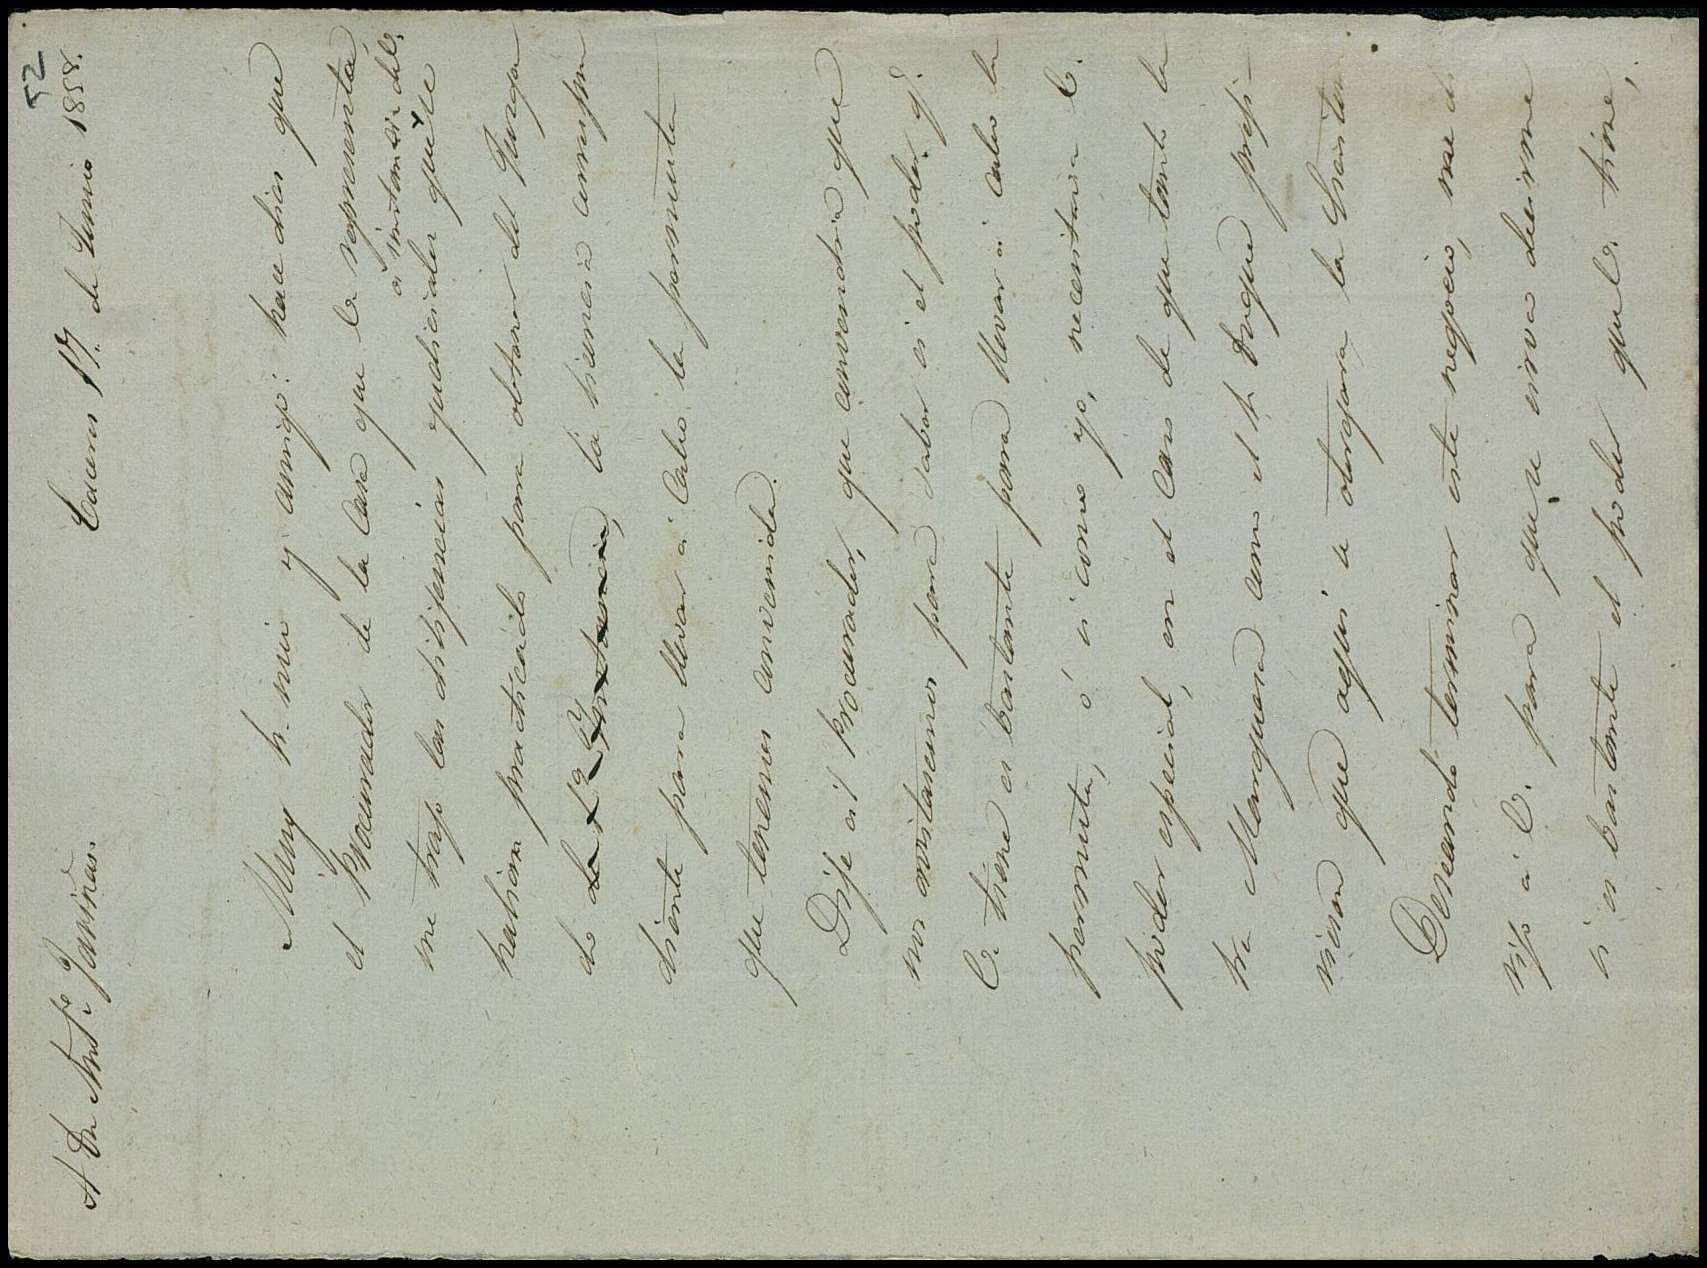 52
A Dn Anto Jariñas.
Caceres 17,, de Junio 1858.
Muy Sr. mio y amigo: hace dias que
el Procurador de la Casa que V. representa,
me trajo las dilijencias judiciales que á instancia de V. se
habian practicado para obtener del Juzga
do de 1ª Ynstancia, la licencia correspon
diente para llevar á cabo la permuta
que tenemos convenida.
Dije al Procurador, que convendria que
nos avistasemos para saber si el poder q.
V. tiene es bastante para llevar á cabo la
permuta, ó si como yo, necesitaria V.
poder especial, en el caso de que tanto la
Sra Marquesa como el Sr Duque prefi-
riesen que aqui se otorgara la Escritura
Deseando terminar este negocio, me di
rijo á V. para que se sirva decirme
si es bastante el poder que V. tiene,